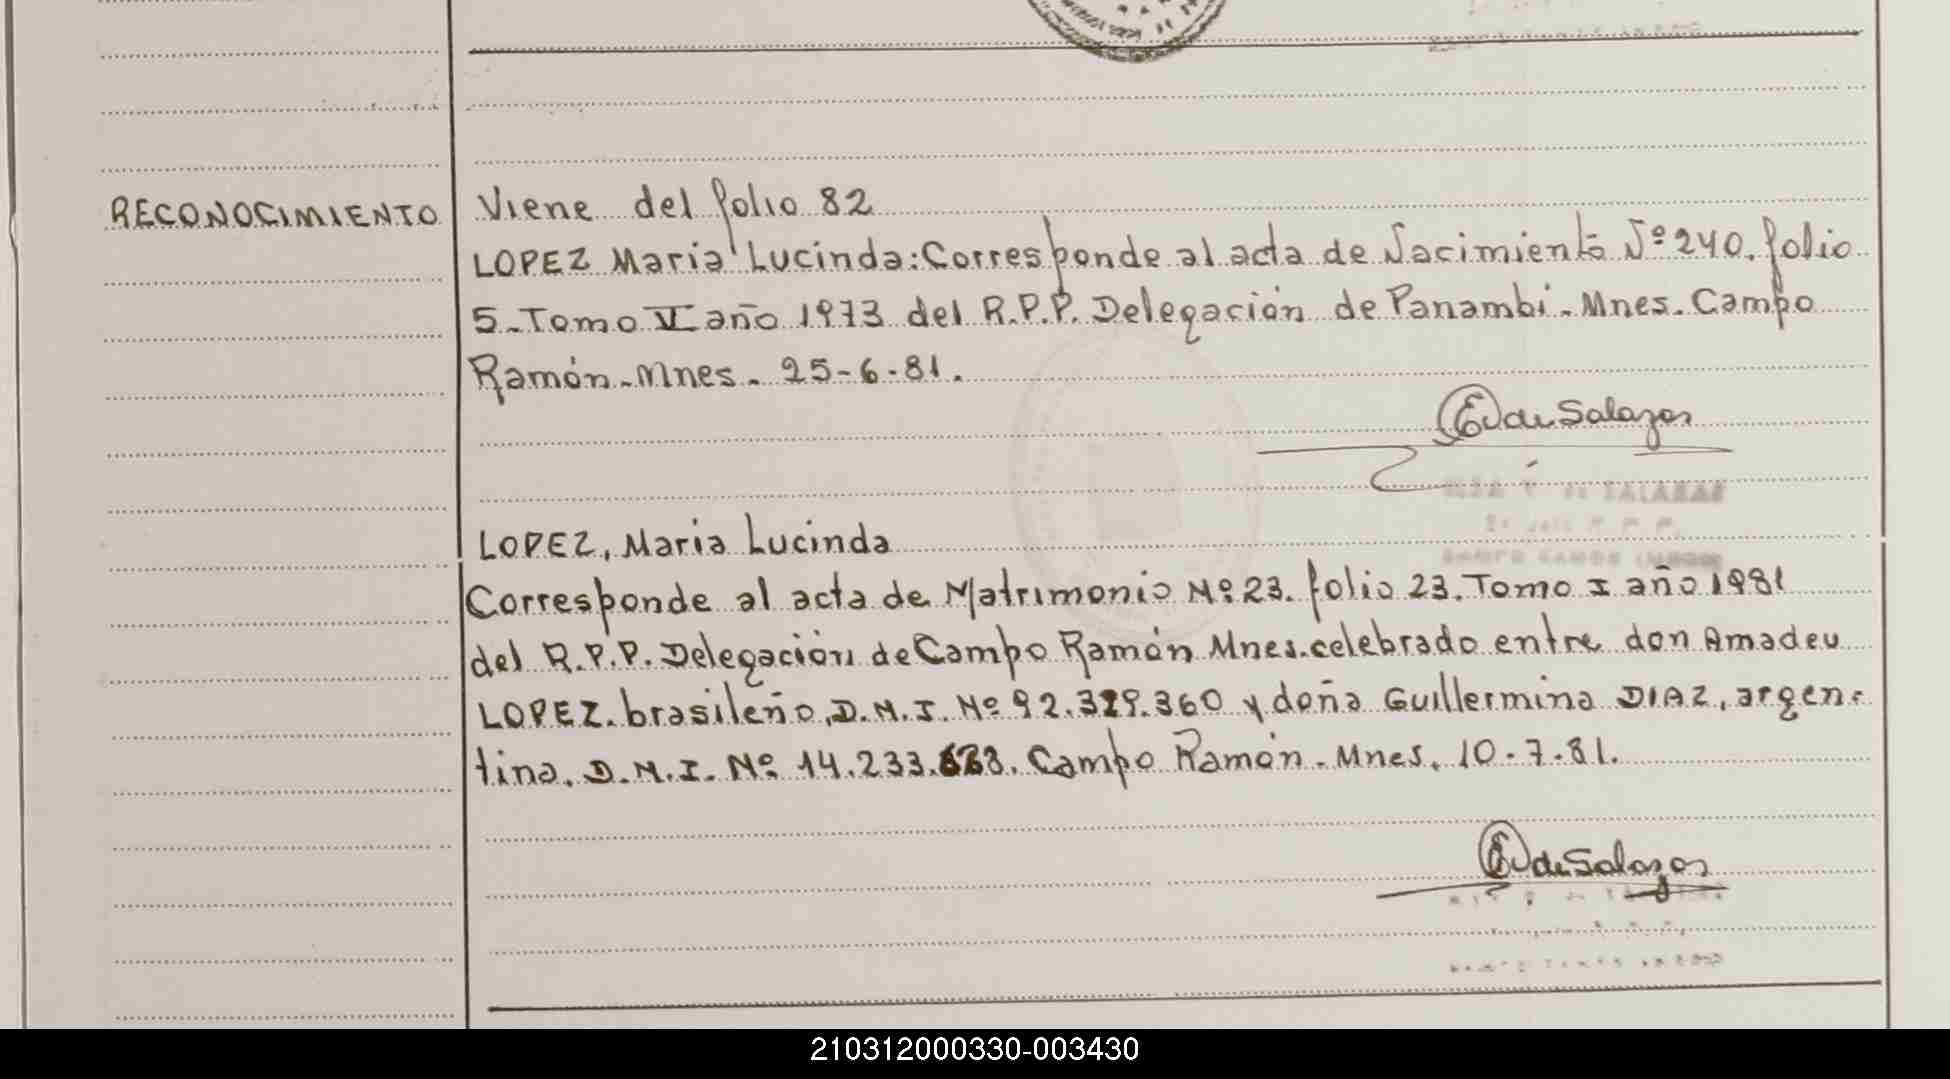 RECONOCIMIENTO
Viene del folio 82
LOPEZ Maria Lucinda: Corresponde al acta de Nacimiento Nº 240. folio
5. Tomo VI año 1973 del R.P.P. Delegación de Panambí. Mnes. Campo
Ramón. Mnes. 25-6-81.
de Salazar
DE SALAZAR
LOPEZ, Maria Lucinda
Corresponde al acta de Matrimonio Nº 23. folio 23. Tomo I año 1981
del R.P.P. Delegación de Campo Ramón Mnes. celebrado entre don Amadeu
LOPEZ. brasileño, D.N.I. Nº 92.329.360 y doña Guillermina DIAZ, argen-
tina. D.N.I. Nº 14.233. Campo Ramón. Mnes. 10-7-81.
de Salazar
210312000330-003430